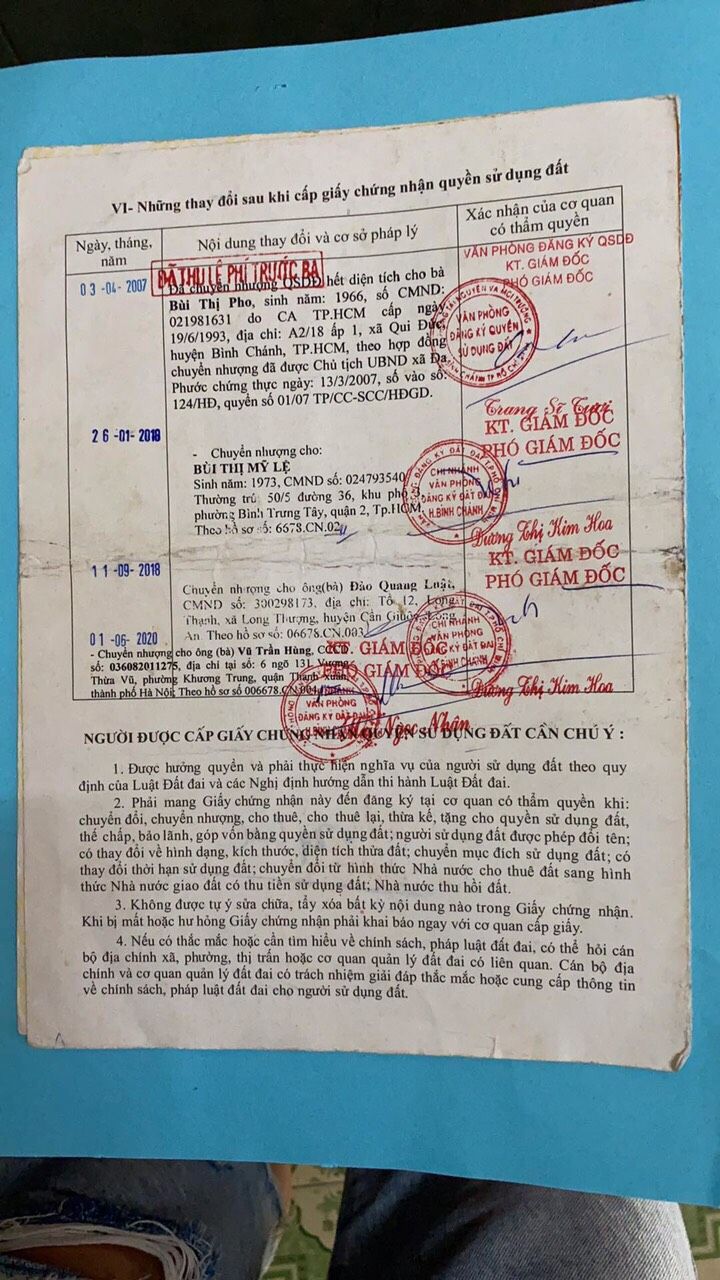 VI- Những thay đổi sau khi cấp giấy chứng nhận quyền sử dụng đất
Ngày, tháng, năm
Nội dung thay đổi và cơ sở pháp lý
Xác nhận của cơ quan có thẩm quyền
03-04-2007
ĐÃ THU LỆ PHÍ TRƯỚC BẠ
Đã chuyển nhượng QSDĐ hết diện tích cho bà
Bùi Thị Pho, sinh năm: 1966, số CMND:
021981631 do CA TP.HCM cấp ngày
19/6/1993, địa chỉ: A2/18 ấp 1, xã Qui Đức,
huyện Bình Chánh, TP.HCM, theo hợp đồng
chuyển nhượng đã được Chủ tịch UBND xã Đa
Phước chứng thực ngày: 13/3/2007, số vào sổ:
124/HĐ, quyển số 01/07 TP/CC-SCC/HĐGD.
VĂN PHÒNG ĐĂNG KÝ QSDĐ
KT. GIÁM ĐỐC
PHÓ GIÁM ĐỐC
VĂN PHÒNG
ĐĂNG KÝ QUYỀN
SỬ DỤNG ĐẤT
Trang Sĩ Tươi
26-01-2018
- Chuyển nhượng cho:
BÙI THỊ MỸ LỆ
Sinh năm: 1973, CMND số: 024793540
Thường trú: 50/5 đường 36, khu phố 3,
phường Bình Trưng Tây, quận 2, Tp.HCM
Theo hồ sơ số: 6678.CN.02
KT. GIÁM ĐỐC
PHÓ GIÁM ĐỐC
CHI NHÁNH
VĂN PHÒNG
ĐĂNG KÝ ĐẤT ĐAI
H.BÌNH CHÁNH
Dương Thị Kim Hoa
11-09-2018
Chuyển nhượng cho ông(bà) Đào Quang Luật,
CMND số: 300298173, địa chỉ: Tổ 12, Long
Thạnh, xã Long Thượng, huyện Cần Giuộc, Long
An. Theo hồ sơ số: 06678.CN.003
KT. GIÁM ĐỐC
PHÓ GIÁM ĐỐC
CHI NHÁNH
VĂN PHÒNG
ĐĂNG KÝ ĐẤT ĐAI
H.BÌNH CHÁNH
Dương Thị Kim Hoa
01-06-2020
- Chuyển nhượng cho ông (bà) Vũ Trần Hùng, CCCD
số: 036082011275, địa chỉ tại số: 6 ngõ 131 Vương
Thừa Vũ, phường Khương Trung, quận Thanh xuân,
thành phố Hà Nội; Theo hồ sơ 006678.CN.004
KT. GIÁM ĐỐC
PHÓ GIÁM ĐỐC
VĂN PHÒNG
ĐĂNG KÝ ĐẤT ĐAI
Ngọc Nhân
NGƯỜI ĐƯỢC CẤP GIẤY CHỨNG NHẬN QUYỀN SỬ DỤNG ĐẤT CẦN CHÚ Ý :
1. Được hưởng quyền và phải thực hiện nghĩa vụ của người sử dụng đất theo quy
định của Luật Đất đai và các Nghị định hướng dẫn thi hành Luật Đất đai.
2. Phải mang Giấy chứng nhận này đến đăng ký tại cơ quan có thẩm quyền khi:
chuyển đổi, chuyển nhượng, cho thuê, cho thuê lại, thừa kế, tặng cho quyền sử dụng đất,
thế chấp, bảo lãnh, góp vốn bằng quyền sử dụng đất; người sử dụng đất được phép đổi tên;
có thay đổi về hình dạng, kích thước, diện tích thửa đất; chuyển mục đích sử dụng đất; có
thay đổi thời hạn sử dụng đất; chuyển đổi từ hình thức Nhà nước cho thuê đất sang hình
thức Nhà nước giao đất có thu tiền sử dụng đất; Nhà nước thu hồi đất.
3. Không được tự ý sửa chữa, tẩy xóa bất kỳ nội dung nào trong Giấy chứng nhận.
Khi bị mất hoặc hư hỏng Giấy chứng nhận phải khai báo ngay với cơ quan cấp giấy.
4. Nếu có thắc mắc hoặc cần tìm hiểu về chính sách, pháp luật đất đai, có thể hỏi cán
bộ địa chính xã, phường, thị trấn hoặc cơ quan quản lý đất đai có liên quan. Cán bộ địa
chính và cơ quan quản lý đất đai có trách nhiệm giải đáp thắc mắc hoặc cung cấp thông tin
về chính sách, pháp luật đất đai cho người sử dụng đất.